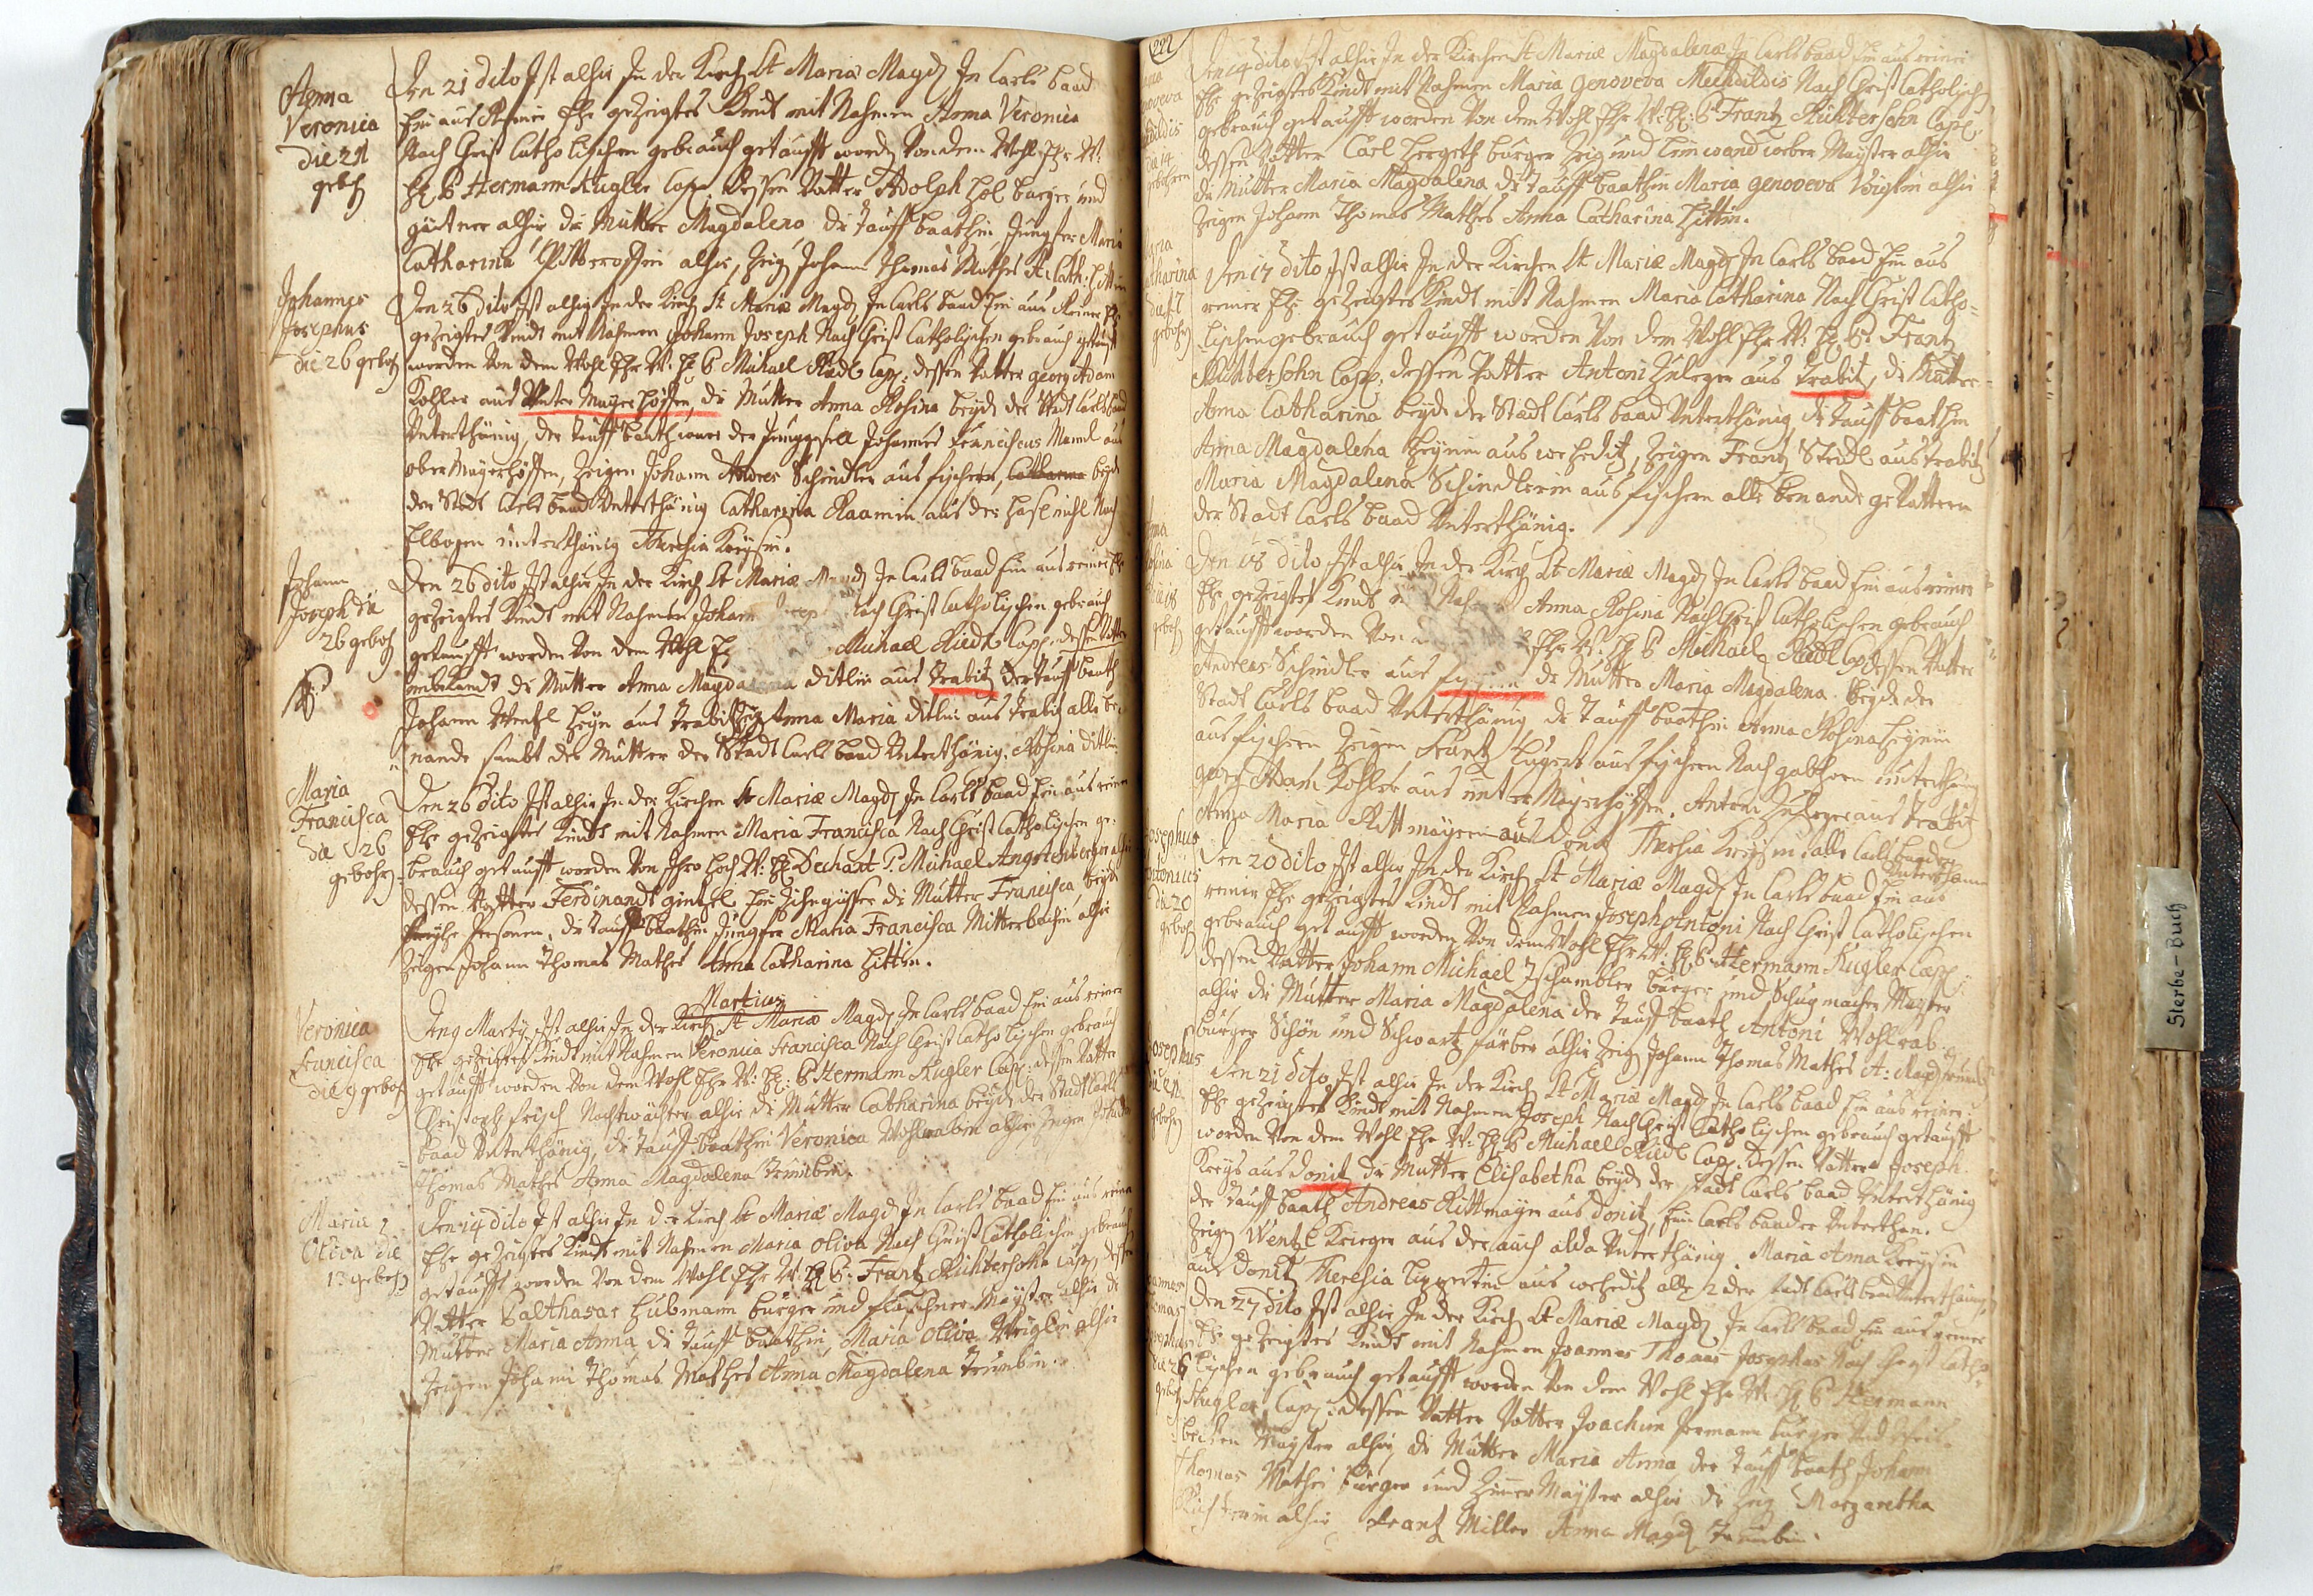 Anna
Veronica
die 21
gebohr
Den 21 dito Ist alhir In der Kirch St Mariæ Magd In Carls baad
Ein aus Reiner Ehe gezeigtes Kindt mit Nahmen Anna Veronica
Nach Christ Catholischen gebrauch getaufft word Von dem Wohl Ehr W:
H: P Hermann Kugler Capp: dessen Vatter Adolph Höl burger und
gärtner alhir die Mutter Magdalena die tauff baathin Jungfer Maria
Catharina alhir, Zeig Johann Thomas Mathes A: Cath: Hittin
Johannes
Josephus
die 26 geboh
Den 26 dito Ist alhir In der Kirch St Mariæ Magd In Carls baad Ein aus Reiner Ehe
gezeigtes Kindt mit Nahmen Johann Joseph Nach Christ Catholischen gebrauch getaufft
worden Von dem Wohl Ehr W: H P Michael Riedl Capp: dessen Vatter georg Adam
Kohler aus Unter Mayerhöffen, die Mutter Anna Rosina beyde der Stadt Carls baad
Unterthänig, der tauff baath ware der Junggesell Johannes Franciscus Mannl aus
ober Mayerhöffen, Zeigen Johann Andres Schindler aus fischern, Catharina beyde
der Stadt Carls baad Unterthänig Catharina Raamin aus der Haselmühl Nach
Elbogen unterthänig Theresia Kreysin.
Johann
Joseph die
26 geboh
Den 26 dito Ist alhir In der Kirch St Mariæ Magd In Carls baad Ein aus reiner Ehe
gezeigtes Kindt mit Nahmen Johann nach Christ Catholischen gebrauch
getaufft worden Von dem Wohl Michael Riedl Capp: dessen Vatter
unbekandt die Mutter Anna Magdalena ditlin aus trabitz der tauff baath
Johann Wentzl Heyn aus trabitz Zeig Anna Maria ditlin aus trabitz alle be-
nande sambt der Mutter der Stadt Carls baad Unterthänig. Rosina ditlin
Maria
Francisca
die 26
gebohr
Den 26 dito Ist alhir In der Kirchen St Mariæ Magd In Carls baad Ein aus reiner
Ehe gezeigtes Kindt mit Nahmen Maria Francisca Nach Christ Catholischen ge-
brauch getaufft worden Von Ihro Hoch W: H: Dechant P: Michael Angstenberger alhir
dessen Vatter Ferdinandt gintzel Ein Zihngiesser die Mutter Francisca beyde
Freyhe Personen, die tauff baathin Jungfer Maria Francisca Mitterbachin alhir
Zeigen Johann Thomas Mathes Anna Catharina Hittin.
Martius
Veronica
Francisca
die 9 geboh
Den 9 Marty Ist alhir In der Kirch St Mariæ Magd In Carls baad Ein aus reiner
Ehe gezeigtes Kindt mit Nahmen Veronica Francisca Nach Christ Catholischen gebrauch
getaufft worden Von dem Wohl Ehr W: H: P Hermann Kugler Capp: dessen Vatter
Christoph frisch Nachtwächter alhir die Mutter Catharina beyde der Stadt Carls
baad Unterthänig, die tauff baathin Veronica Wohlrabin alhir Zeigen Johann
Thomas Mathes Anna Magdalena
Maria
Oliva die
13 geboh
Den 14 dito Ist alhir In der Kirch St Mariæ Magd In Carls baad Ein aus reiner
Ehe gezeigtes Kindt mit Nahmen Maria Oliva Nach Christ Catholischen gebrauch
getaufft worden Von dem Wohl Ehr W: H P: Frantz Richtersohn Capp: dessen
Vatter Balthasar Hubmann burger und Mayster alhir die
Mutter Maria Anna die tauff baathin, Maria Oliva alhir
Zeigen Johann Thomas Mathes Anna Magdalena
222
Den 14 dito Ist alhir In der Kirchen St Mariæ Magdalenæ In Carls baad Ein aus reiner
Ehe gezeigtes Kindt mit Nahmen Maria Genoveva Mechtildis Nach Christ Catholischen
gebrauch getaufft worden Von dem Wohl Ehr W: H: P Frantz Richtersohn Capp:
dessen Vatter Carl Hergeth burger Zeig und leinwand weber Mayster alhir
die Mutter Maria Magdalena die tauff baathin Maria Genoveva Voigtin alhir
Zeigen Johann Thomas Mathes Anna Catharina Hittin.
Den 17 dito Ist alhir In der Kirchen St Mariæ Magd In Carls baad Ein aus
reiner Ehe gezeigtes Kindt mit Nahmen Maria Catharina Nach Christ Catho-
lischen gebrauch getaufft worden Von dem Wohl Ehr W: H P: Frantz
Richtersohn Capp: dessen Vatter Antoni Zuleger aus trabitz, die Mutter
Anna Catharina beyde der Stadt Carls baad Unterthänig, die tauff baathin
Anna Magdalena Heynin aus weheditz, Zeigen Frantz Steidl aus trabitz
Maria Magdalena Schindlerin aus fischern alle benande gevattern
der Stadt Carls baad Unterthänig.
Den 18 dito Ist alhir In der Kirch St Mariæ Magd In Carls baad Ein aus reiner
Ehe gezeigtes Kindt Anna Rosina Nach Christ Catholischen gebrauch
getaufft worden Von Ehr W: H P Michael Riedl Capp dessen Vatter
Andreas Schindler aus fischern die Mutter Maria Magdalena. beyde der
Stadt Carls baad Unterthänig die tauff baathin Anna Rosina Heynin
aus fischern Zeigen Frantz Lugert aus fischern Nach gabhorn unterthänig
georg Adam Kohler aus unter Mayerhöffen. Antoni Zuleger aus trabitz
Anna Maria Rittmayrin aus donitz Theresia Kreysin alle Carls baader
Unterthanen
Josephus
Antonius
die 20
geboh
Den 20 dito Ist alhir In der Kirch St Mariæ Magd In Carls baad Ein aus
reiner Ehe gezeigtes Kindt mit Nahmen Joseph Antoni Nach Christ Catholischen
gebrauch getaufft worden Von dem Wohl Ehr W: H P Hermann Kugler Capp:
dessen Vatter Johann Michael Zschambler burger und Schug macher Mayster
alhir die Mutter Maria Magdalena der tauff baath Antoni Wohlrab.
burger Schön und Schwartz färber alhir Zeig Johann Thomas Mathes A: Magd
Josephus
Den 21 dito Ist alhir In der Kirch St Mariæ Magd In Carls baad Ein aus reiner
Ehe gezeigtes Kindt mit Nahmen Joseph Nach Christ Catholischen gebrauch getaufft
worden Von dem Wohl Ehr W: H P Michael Riedl Capp: dessen Vatter Joseph
Kreys aus donitz die Mutter Elisabetha beyde der stadt Carls baad Unterthänig
der tauff baath Andreas Rittmayer aus donitz, Ein Carls baader Unterthan.
Zeigen Wentzl Krieger aus der auch alda Unterthänig. Maria Anna Kreysin
aus donitz Theresia Lippertin aus weheditz alle 2 der stadt Carls baad Unterthänig
Den 27 dito Ist alhir In der Kirch St Mariæ Magd In Carls baad Ein aus reiner
Ehe gezeigtes Kindt mit Nahmen Joannes Thomas Josephus Nach Christ Catho-
lischen gebrauch getaufft worden Von dem Wohl Ehr W: H P Hermann
Kugler Capp: dessen Vatter Vatter Joachim Hermann burger Und
Mayster alhir, die Mutter Maria Anna der tauff baath Johann
Thomas Mathes burger und Zimer Mayster alhir die Zeig Margaretha
alhir Frantz Miller Anna Magd
Sterbe-Buch